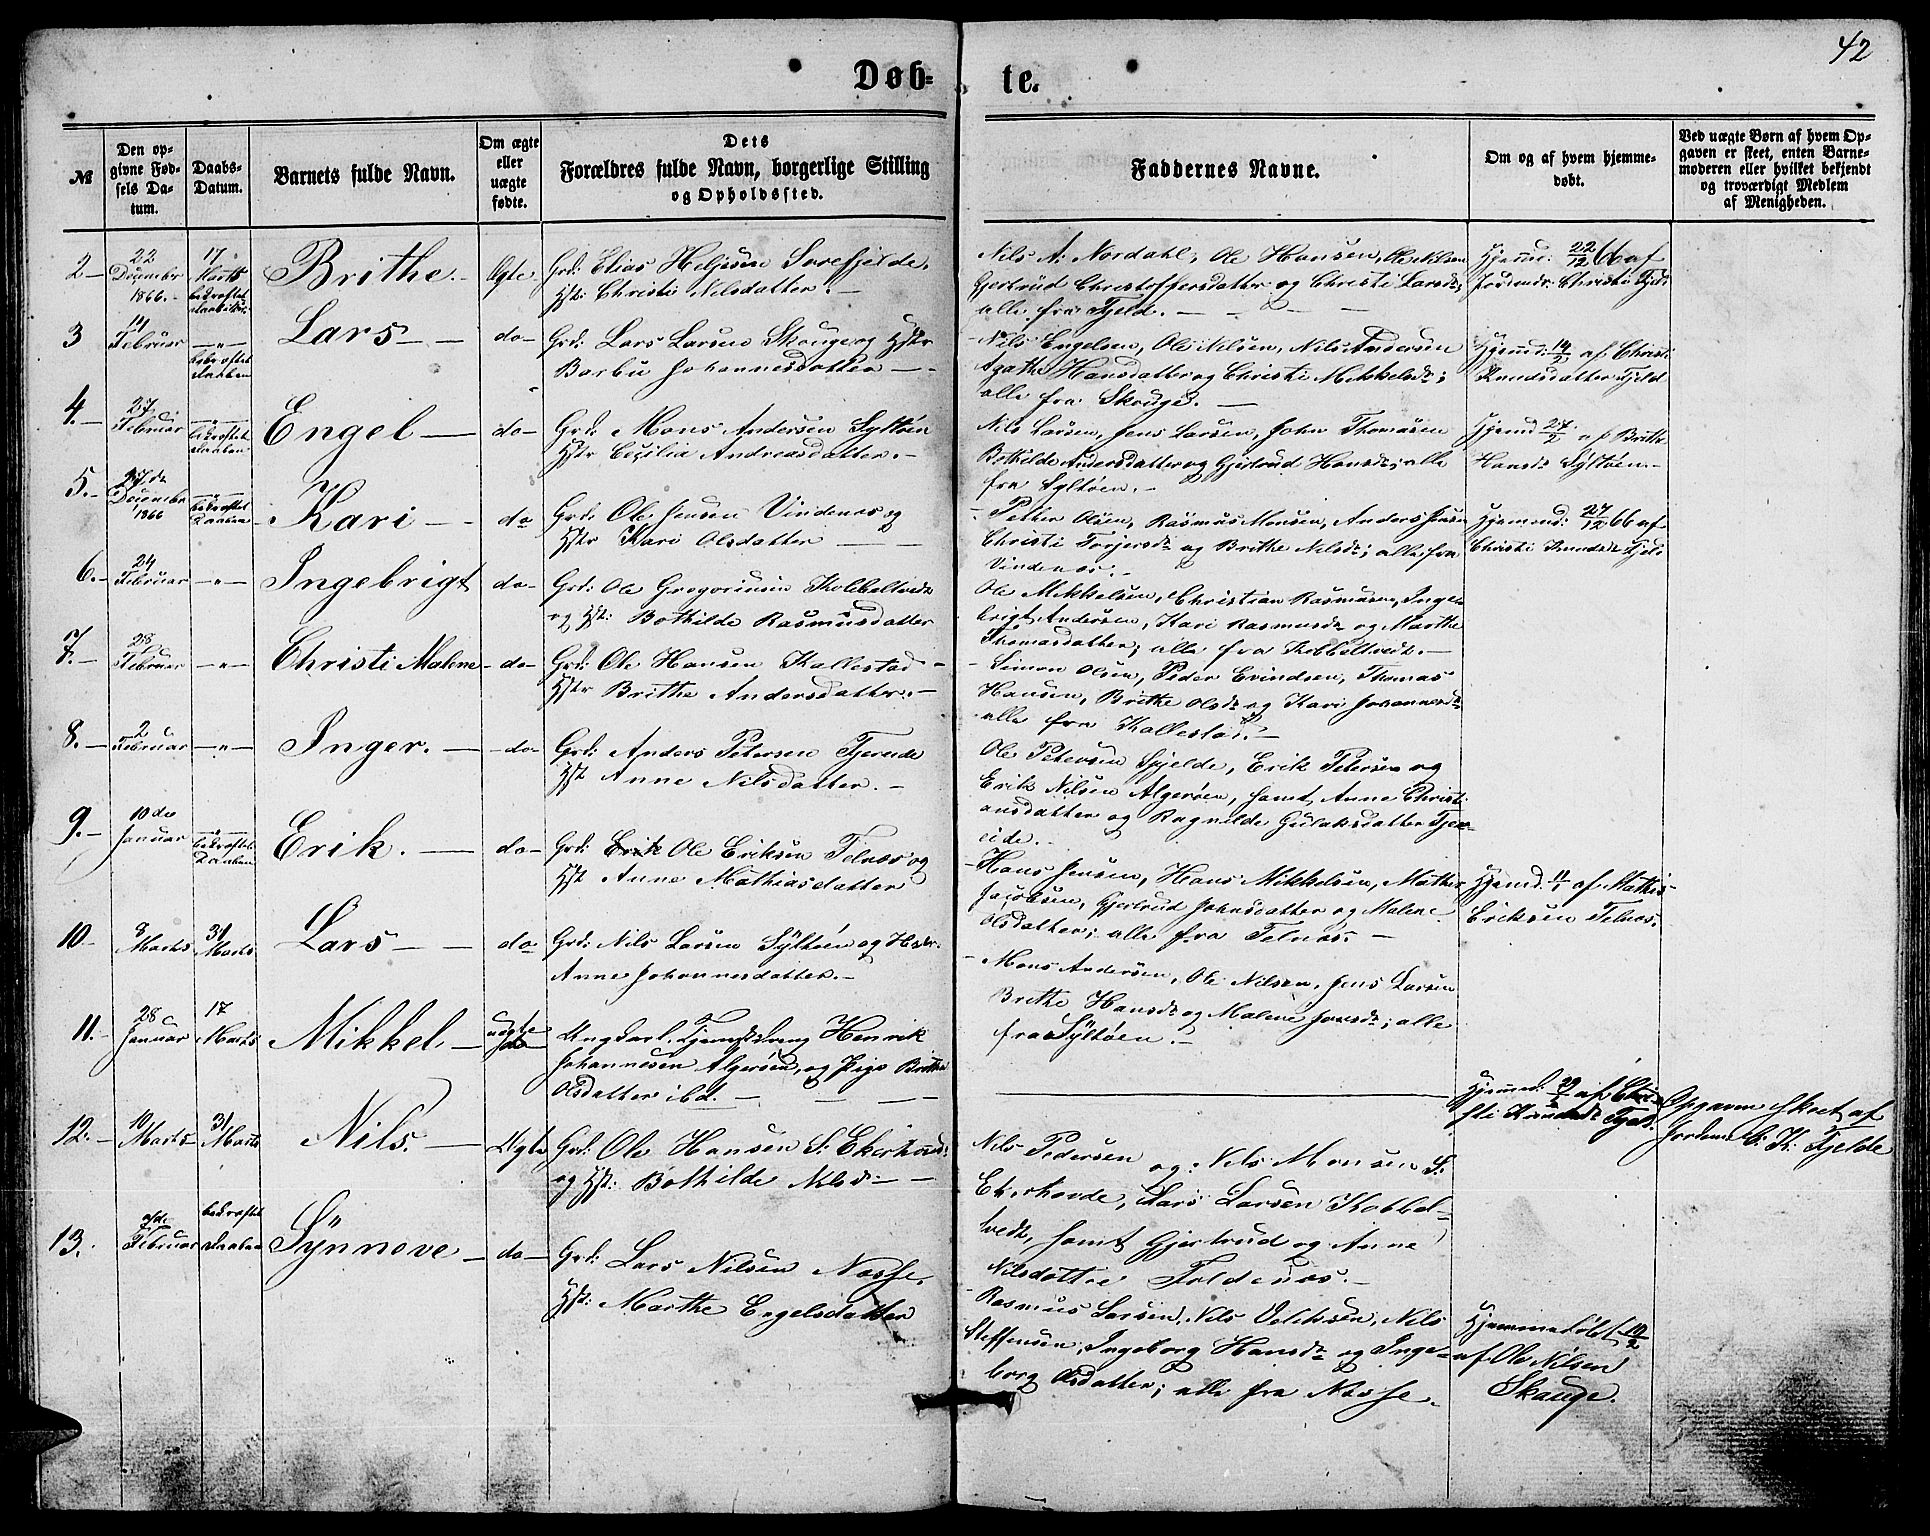 42
Døb-te.
№
Den opgivne Fødsels Datum.
Daabs-Datum.
Barnets fulde Navn.
Om ægte eller uægte fødte.
Dets Forældres fulde Navn, borgerlige Stilling og Opholdssted.
Faddernes Navne.
Om og af hvem hjemmedøbt.
Ved uægte Børn af hvem Opgaven er skeet, enten Barnemoderen eller hvilket bekjendt og troværdigt Medlem af Menigheden.
2 - 22 Decembr 1866. - 17 Marts bekræftet Daaben
Brithe. - Ægte
Grd: Elias Heljesen Sørefjelde,
Hst: Christi Nilsdatter. -
Nils A. Nordahl, Ole Hansen, Ole Nilsen
Gjertrud Christoffersdatter og Christi Larsd;
alle fra Fjeld. -
Hjemmd: 22/12 66 af
Jordmdr. Christi Fjeld
3 11 Februar -"- bekræftet Daaben
Lars - do -
Grd: Lars Larsen Skouge og Hstr
Barbu Johannesdatter -
Nils Engelsen, Ole Nilsen, Nils Andersen
Agathe Hansdatter og Christi Mikkelsdr;
alle fra Skouge. -
Hjemmd: 14/2 af Christi
Knudsdatter Fjeld
4. - 27 Februar -"- bekræftet Daaben
Engel - do -
Grd: Mons Andersen Syltøen
Hstr Ceçilia Andreasdatter. -
Nils Larsen, Jens Larsen, John Thomasen
Bothilde Andersdatter og Gjertrud Hansdr; alle
fra Syltøen. -
Hjemmd 27/2 af Brithe
Hansdr Syltøen. -
5. - 27. de Decembr 1866 -"- bekræftet Daaben
Kari - do
Grd: Ole Jensen Vindenæs og
Hstr Kari Olsdatter -
Petter Olsen, Rasmus Monsen, Anders Jensen
Christi Torjersdr og Brithe Nilsdr; alle fra
Vindenæs. -
Hjemmd: 27/12 66 af
Christi Knudsdr Fjeld
6. - 24 Februar -"-
Ingebrigt do -
Grd: Ole Gregoriusen Kobbeltvedt
og Hst: Bothilde Rasmusdatter
Ole Mikkelsen, Christian Rasmusen, Inge-
brigt Andersen, Kari Rasmusdr og Marthe
Thomasdatter; alle fra Kobbeltvedt. -
7. - 28 Februar -"-
Christi Malene - do -
Grd: Ole Hansen Kallestad -
Hstr Brithe Andersdatter. -
Simon Olsen, Peder Evindsen, Thomas
Hansen, Brithe Olsdr og Kari Johannesdr
alle fra Kallestad. -
8. - 2 Februar -"-
Inger. - do -
Grd: Anders Petersen Tjereide
Hst Anne Nilsdatter. -
Ole Petersen Spjelde, Erik Petersen og
Erik Nilsen Algerøen, samt Anne Christi-
ansdatter og Ragnilde Gulaksdatter Tjer-
eide. -
9. - 10 de Januar -"- bekræftet Daaben
Erik. - do -
Grd: Erik Ole Eriksen Telnæs og
Hst Anne Mathiasdatter
Hans Jensen, Hans Mikkelsen, Mathis
Jaçobsen, Gjertrud Johnsdatter og Malene
Olsdatter; alle fra Telnæs. -
Hjemd. 11/1 af Mathis
Eriksen Telnæs.
10 - 8 Marts 31 Marts
Lars - do
Grd: Nils Larsen Syltøen og Hstr
Anne Johannesdatter. -
Mons Andersen, Ole Nilsen, Jens Larsen
Brithe Hansdr og Malene Jonsdr; alle
fra Syltøen. -
11. - 28 Januar 17 Marts
Mikkel - uægte
Ungkarl, Tjenestdreng Henrik
Johannesen Algerøen, og Pige Brithe
Olsdatter ibd. -
Hjemmed: 29/1 af Chri-
sti Knudsdr Fjeld.
Opgaven skeet af
Jordmo. C. K. Fjelde
12. - 10 Marts 31 Marts
Nils. - Ægte
Grd: Ole Hansen S: Ekerhovd
og Hst: Bothilde Nilsdr -
Nils Pedersen og Nils Monsen S.
Ekerhovde, Lars Larsen Kobbel-
tvedt, samt Gjertrud og Anne
Nilsdøttre Foldenæs. -
13. Februar bekræftet Daaben
Synneve - do -
Grd: Lars Nilsen Næsse,
Hst: Marthe Engelsdatter
Rasmus Larsen, Nils Nilsen, Nils
Steffensen, Ingeborg Hansdr og Inge-
borg Olsdatter; alle fra Næsse.
Hjemmedøbt 10/2
af Ole Nilsen
Skauge.